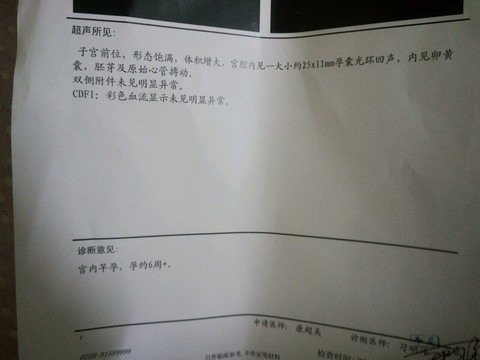 超声所见:
子宫前位，形态饱满，体积增大，宫腔内见一大小约25x11mm孕囊光环回声，内见卵黄
囊，胚芽及原始心管搏动.
双侧附件未见明显异常.
CDFI: 彩色血流显示未见明显异常.
诊断意见:
宫内早孕，孕约6周+.
申请医师: 康超美
诊断医师:
仅供临床参考，不作证明材料
检查时间